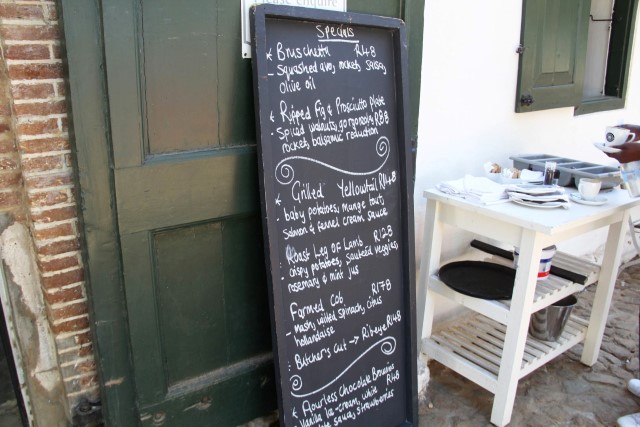 Specials
* Bruschetta R48
- Squashed avo, rocket, salsa,
olive oil
* Ripped Fig & Prosciutto plate
- Spiced walnuts, gorgonzola, R88
rocket, balsamic reduction
* Grilled Yellowtail R148
- baby potatoes, mange tout,
Salmon & fennel cream sauce
Roast Leg of Lamb R128
crispy potatoes, sauteed veggies,
rosemary & mint jus
Farmed Cob R178
- Mash, wilted spinach, citrus
hollandaise
: Butcher's cut → Ribeye R148
* Flourless Chocolate Brownies
- Vanilla ice-cream, white R48
sauce, strawberries